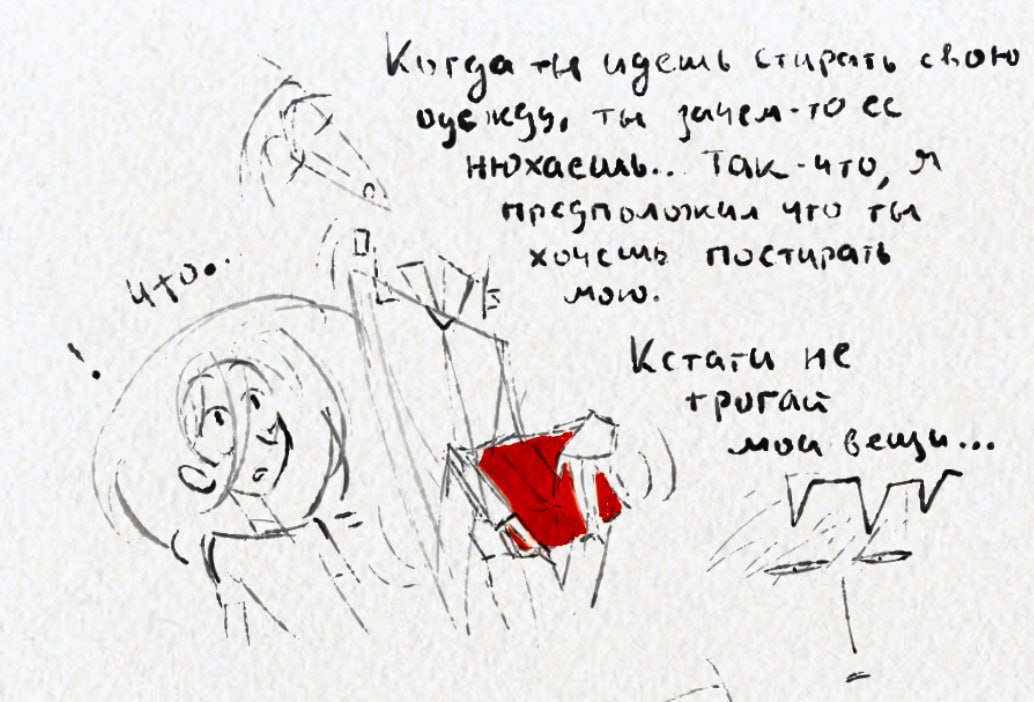 Когда ты идешь стирать свою
одежду, ты зачем-то ее
нюхаешь.. Так-что, я
предположил что ты
хочешь постирать
мою.
что..
Кстати не
трогай
мои вещи...